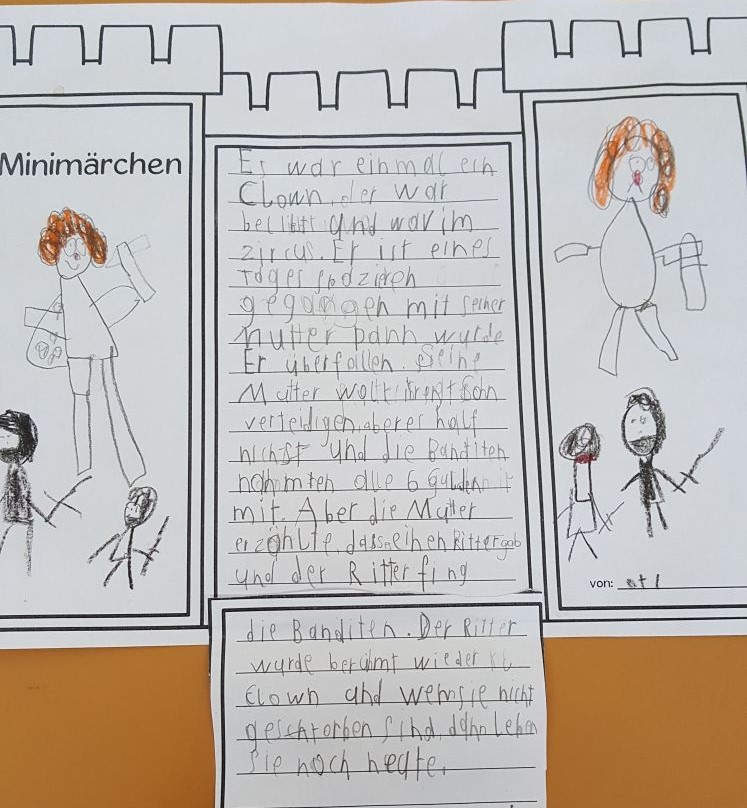 Minimärchen
Es war einmal ein
Clown, der war
beliibtt und war im
zircus. Er ist eines
Tages spazieren
gegangen mit seiner
Mutter Dann wurde
Er überfallen. Seine
Mutter wollt Sohn
verteidigen, aber er half
nichst und die Banditen
nahmten alle 6 Gulden
mit. Aber die Mutter
erzählte, dass einen Ritter gab
und der Ritter fing
die Banditen. Der Ritter
wurde berühmt wie der
Clown und wenn sie nicht
geschtorben sind, dahn leben
sie noch heute.
von: